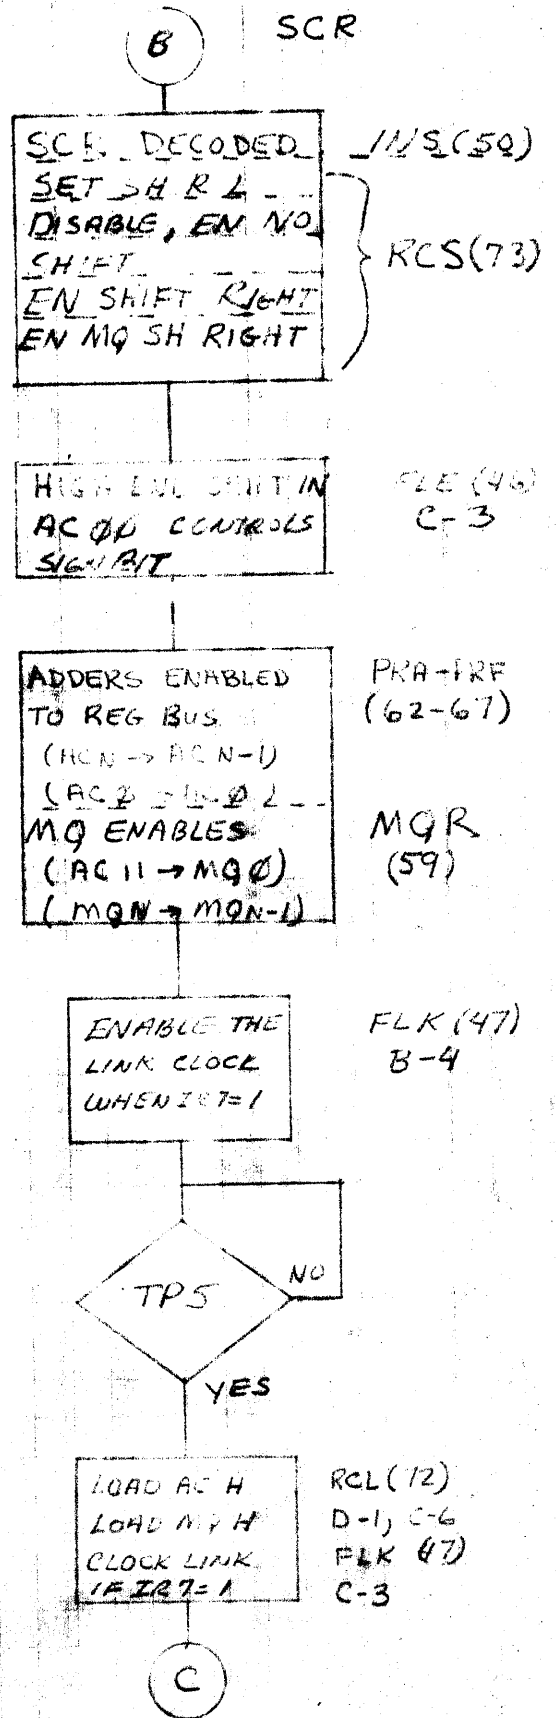 B
SCR
SCR DECODED INS(50)
SET SH R L
DISABLE, EN NO
SHIFT
EN SHIFT RIGHT
EN MQ SH RIGHT
RCS(73)
HIGH END SHIFT IN
AC ØØ CONTROLS
SIGN BIT
FLE (46)
C-3
ADDERS ENABLED
TO REG BUS
(ACN → ACN-1)
(ACØ → ACØ)
MQ ENABLES
(AC11 → MQØ)
(MQN → MQN-1)
PRA-PRF
(62-67)
MQR
(59)
ENABLE THE
LINK CLOCK
WHEN IR7=1
FLK (47)
B-4
TP5
NO
YES
LOAD AC H
LOAD MQ H
CLOCK LINK
IF IR7=1
RCL(72)
D-1, C-6
FLK (47)
C-3
C